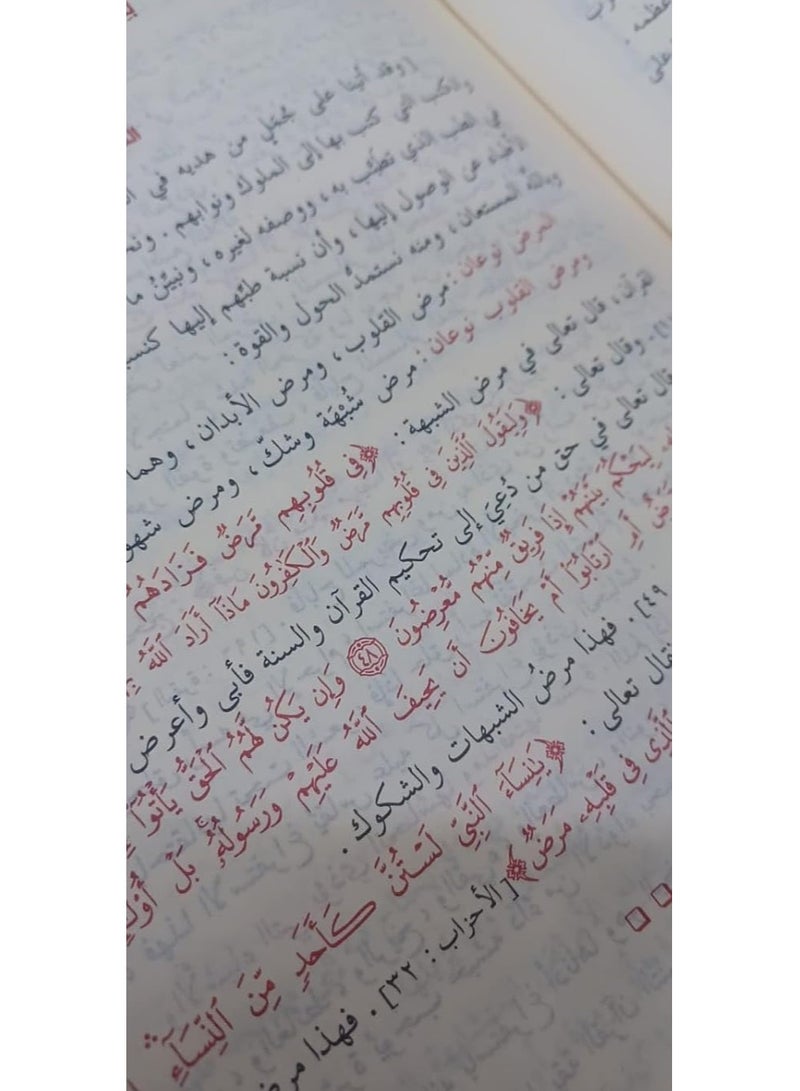 عظمه .
على
وقد أتينا على جمل من هديه في
والكتب التي كتب بها إلى الملوك ونوابهم . ونحن
في الطب الذي تطبّب به ، ووصفه لغيره ، ونبيّنُ ما
عن الوصول إليها ، وأن نسبة طبّهم إليها كنسبة
وبالله المستعان ، ومنه نستمدُّ الحول والقوة :
المرض نوعان : مرض القلوب ، ومرض الأبدان ، وهما
ومرض القلوب نوعان : مرض شُبْهَة وشكّ ، ومرض شهو
القرآن ، قال تعالى في مرض الشبهة : ﴿فِي قُلُوبِهِم مَّرَضٌ فَزَادَهُمُ
وقال تعالى : ﴿وَلِيَقُولَ ٱلَّذِينَ فِي قُلُوبِهِم مَّرَضٌ وَٱلْكَٰفِرُونَ مَاذَآ أَرَادَ ٱللَّهُ
قال تعالى في حق من دُعِيَ إلى تحكيم القرآن والسنة فأبى وأعرض
لِيَحْكُمَ بَيْنَهُمْ إِذَا فَرِيقٌ مِّنْهُم مُّعْرِضُونَ ٤٨ وَإِن يَكُن لَّهُمُ ٱلْحَقُّ يَأْتُوٓا۟
أَمِ ٱرْتَابُوٓا۟ أَمْ يَخَافُونَ أَن يَحِيفَ ٱللَّهُ عَلَيْهِمْ وَرَسُولُهُۥ بَلْ
٤٩] . فهذا مرضُ الشبهات والشكوك .
فقال تعالى : ﴿يَٰنِسَآءَ ٱلنَّبِيِّ لَسْتُنَّ كَأَحَدٍ مِّنَ ٱلنِّسَآءِ
ٱلَّذِي فِي قَلْبِهِۦ مَرَضٌ﴾ [الأحزاب : ٣٢] . فهذا مرض